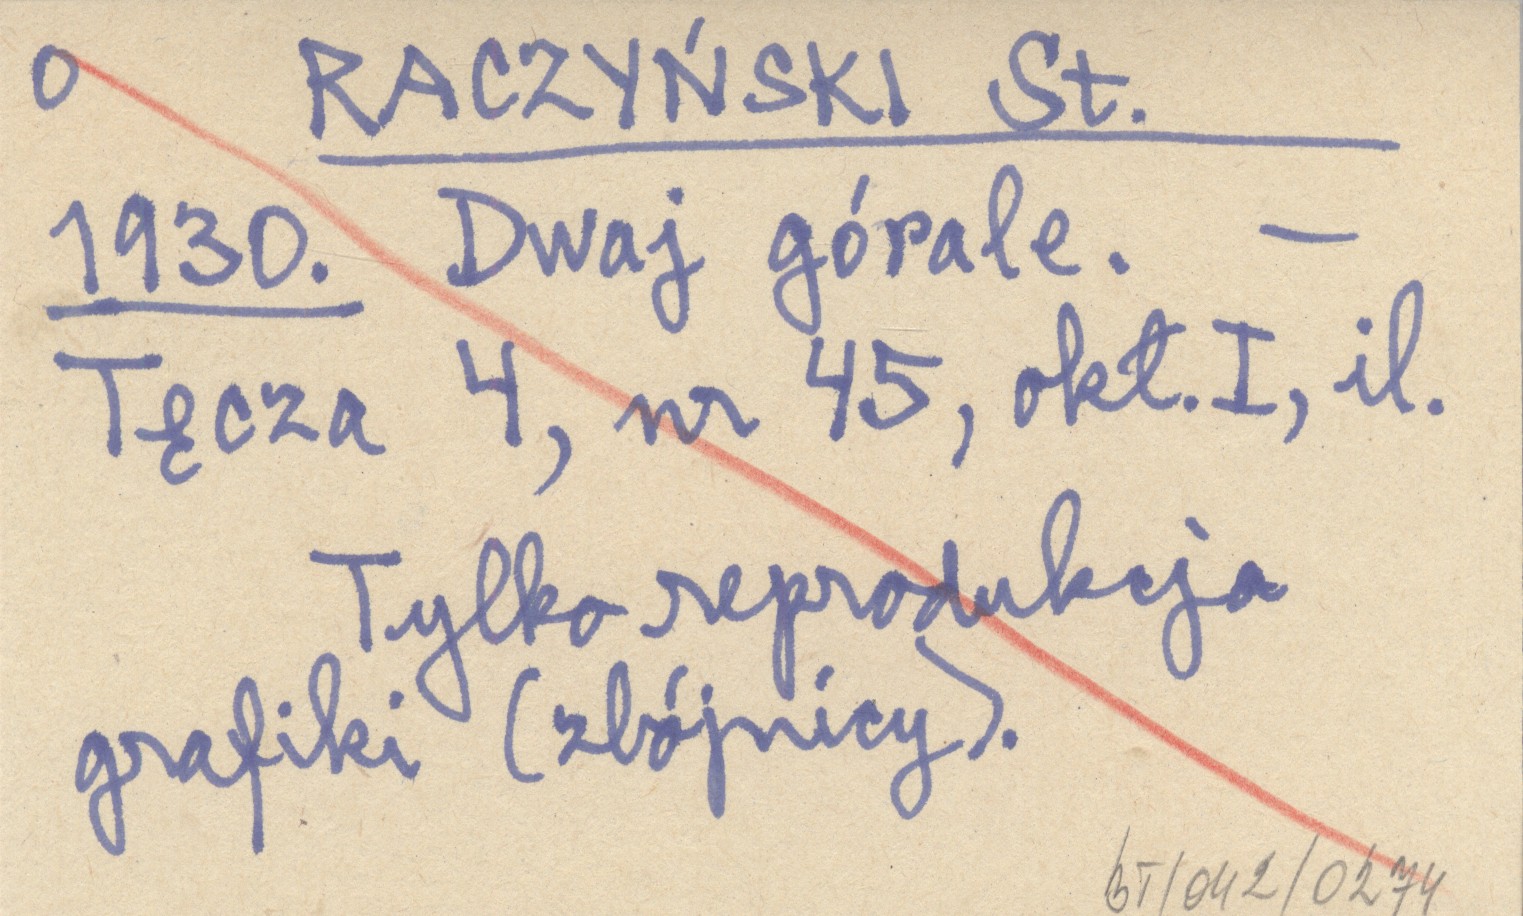 O RACZYŃSKI St.
1930. Dwaj górale. —
Tęcza 4, nr 45, okł. I, il.
Tylko reprodukcja
grafiki (zbójnicy).
BT/042/0274